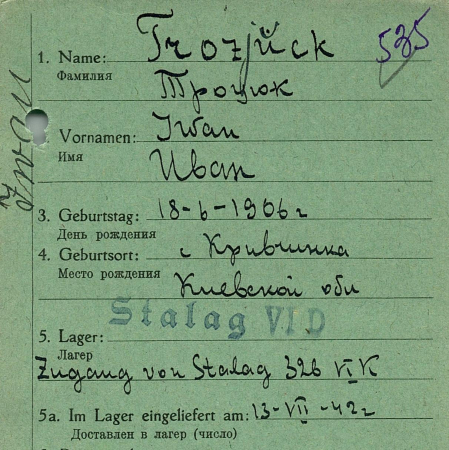 535
1. Name: Trozjück
Фамилия Троцюк
Vornamen: Iwan
Имя Иван
3. Geburtstag: 18-6-1906 г
День рождения
4. Geburtsort: с Кривчинка
Место рождения Киевской обл
Stalag VI D
5. Lager:
Лагер
Zugang von Stalag 326 VI K
5a. Im Lager eingeliefert am: 13-VII-42 г
Доставлен в лагер (число)